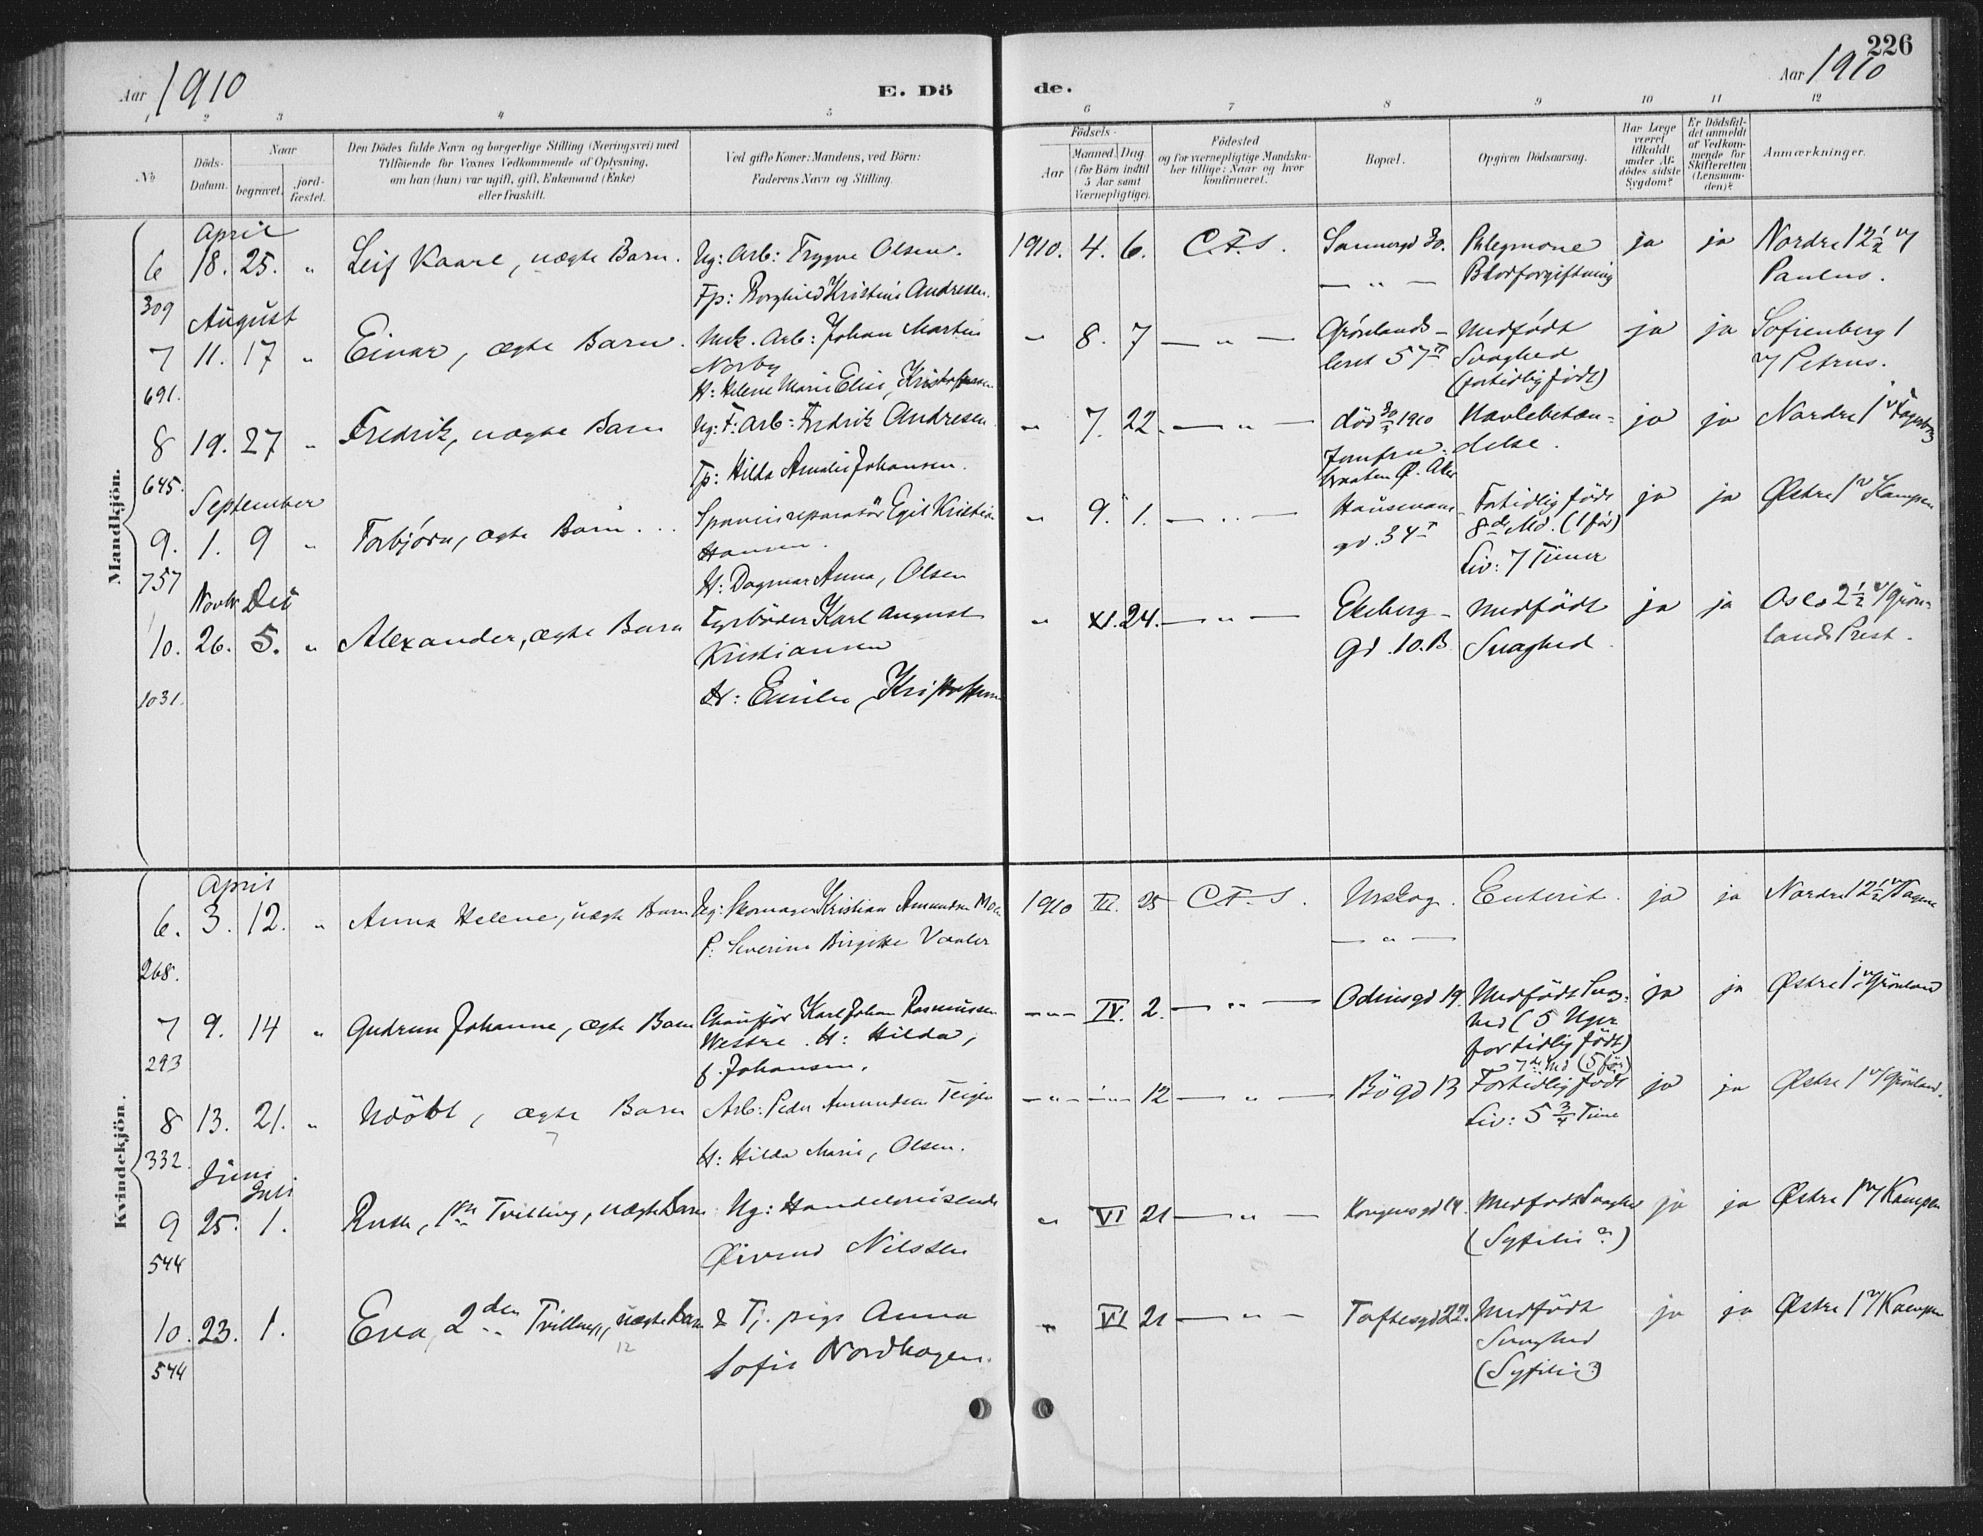 226
Aar 1910
E. Dö
de.
Aar 1910
1 2 3 4 5 6 7 8 9 10 11 12
No
Döds-
Datum.
Naar
begravet.
jord-
fæstet.
Den Dödes fulde Navn og borgerlige Stilling (Næringsvei) med
Tilföiende for Voxnes Vedkommende af Oplysning,
om han (hun) var ugift, gift, Enkemand (Enke)
eller fraskilt.
Ved gifte Koner: Mandens, ved Börn:
Faderens Navn og Stilling.
Födsels-
Aar
Maaned. Dag.
(for Börn indtil
5 Aar samt
Værnepligtige).
Födested
og for værnepligtige Mandska-
ber tillige: Naar og hvor
konfirmeret.
Bopæl.
Opgiven Dödsaarsag.
Har Læge
været
tilkaldt
under Af-
dödes sidste
Sygdom?
Er Dödsfal-
det anmeldt
af Vedkom-
mende for
Skifteretten
(Lensman-
den)?
Anmærkninger.
Mandkjön.
April
6 18. 25. " Leif Kaare, uægte Barn. Ug: Arb: Trygve Olsen. 1910. 4. 6. C.F.S. Sannergd 30. Phlegmone ja ja Nordre 12 1/2 v/
309 Fp: Borghild Kristine Andresen. — " — Blodforgiftning Paulus.
August
7 11. 17 " Einar, ægte Barn. Mek. Arb: Johan Martin " 8. 7 — " — Grönlands- Medfödt ja ja Sofienberg 1
Norby leret 57 II Svaghed v/ Petrus.
691. H: Helene Marie Elise, Kristoffersen (fortidlig födt)
8 19. 27 " Fredrik, uægte Barn Ug: F: Arb: Fredrik Andresen " 7. 22. — " — död 30/7 1910 Navlebetæn- ja ja Nordre 1 v Fagerborg
645. Tp: Hilda Amalie Johansen. Jomfru- delse.
braaten Ø. Aker
September
9. 1. 9 " Torbjörn, ægte Barn. Egil Kristian " 9. 1. — " — Hausmans- Fortidlig födt ja ja Østre 1 v Kampen
Hansen. gd. 34 I 8de Md. (1 för)
757 H: Dagmar Anna, Olsen Liv: 7 Timer
Novbr Des
10. 26. 5. " Alexander, ægte Barn Fyrböder Karl August " XI. 24. — " — Ekeberg- Medfödt ja ja Oslo 2 1/2 v/ Grön-
Kristiansen gd. 10.B Svaghed lands Prest.
1031. H: Emilie, Kristoffersen
Kvindekjön.
April
6. 3. 12. " Anna Helene, uægte Barn Ug: Skomager Kristian Amundsen Moen 1910 III. 25 C.F.S. Urskog. Enterit. ja ja Nordre 12 1/2 v/
268. P: Severine Birgitte Vaaler — " —
7 9. 14 " Gudrun Johanne, ægte Barn Chaufför Karl Johan Rasmussen — " — IV. 2. — " — Odinsgd 19. Medfödt Svag- ja ja Østre 1 v/ Grönland
293 Westre. H: Hilda, hed (5 Uger
f. Johansen. fortidlig födt)
7de Md (5 för)
8 13. 21. " Udöbt, ægte Barn Arb: Peder Amundsen Teigen — " — — " — 12 — " — Bögd 13 Fortidlig födt ja ja Østre 1 v/ Grönland.
332. H: Hilda Marie, Olsen. Liv: 5 3/4 Time
Juni Juli
9 25. 1. Ruth, 1ste Tvilling, uægte Barn Ug: Handelsreisende " VI 21 — " — Kongensgd 14. Medfödt Svaghed ja ja Østre 1 v/ Kampen
544 Øivind Nilssen (Syfilis?)
10. 23. 1. Eva, 2den Tvilling, uægte Barn & Tj. pige Anna " VI 21 — " — Toftesgd 22. Medfödt ja ja Østre 1 v/ Kampen
12 Svaghed
544 Sofie Nordhagen. (Syfilis?)